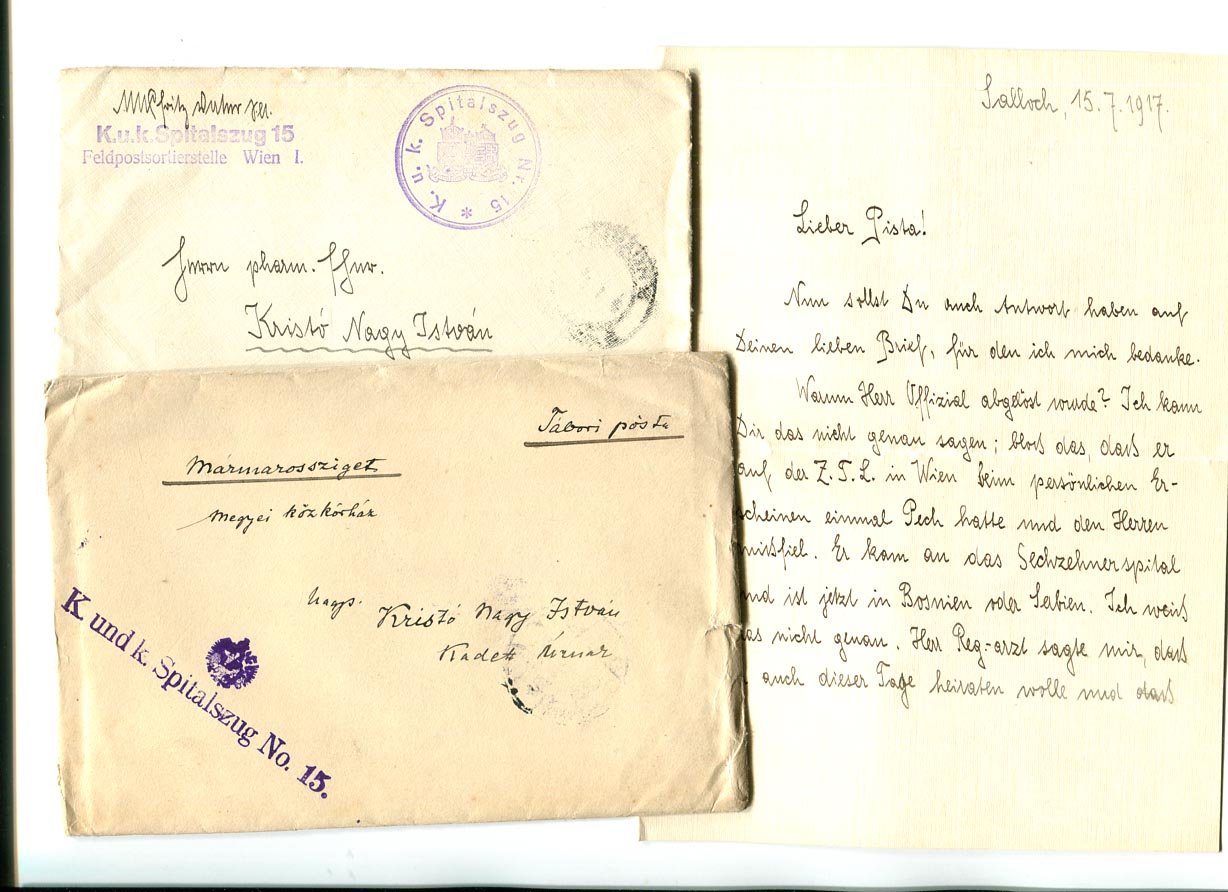 K.u.k. Spitalszug 15
Feldpostsortierstelle Wien I.
K. u. k. Spitalszug Nr. 15 *
Herrn pharm.
Kristó Nagy István
Tábori posta
Mármarossziget
megyei közkórház
Nags. Kristó Nagy István
Kadett Úrnak
K. und k. Spitalszug No. 15.
Salloch, 15.7.1917.
Lieber Pista!
Nun sollst Du auch Antwort haben auf
Deinen lieben Brief, für den ich mich bedanke.
Warum Herr Offizial abgelöst wurde? Ich kann
Dir das nicht genau sagen; bloß das, daß er
auf der Z.T.L. in Wien beim persönlichen Er-
scheinen einmal Pech hatte und den Herren
mißfiel. Er kam an das Sechzehnerspital
und ist jetzt in Bosnien oder Serbien. Ich weiß
das nicht genau. Herr Reg.-arzt sagte mir, daß
auch dieser Tage heiraten wolle und daß